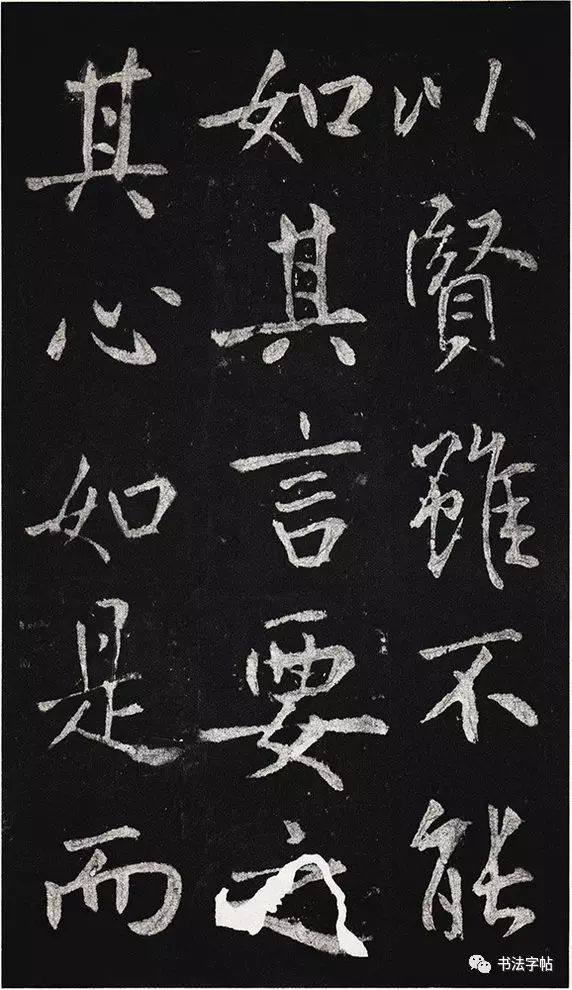 以賢雖不能
如其言要之
其心如是而
书法字帖